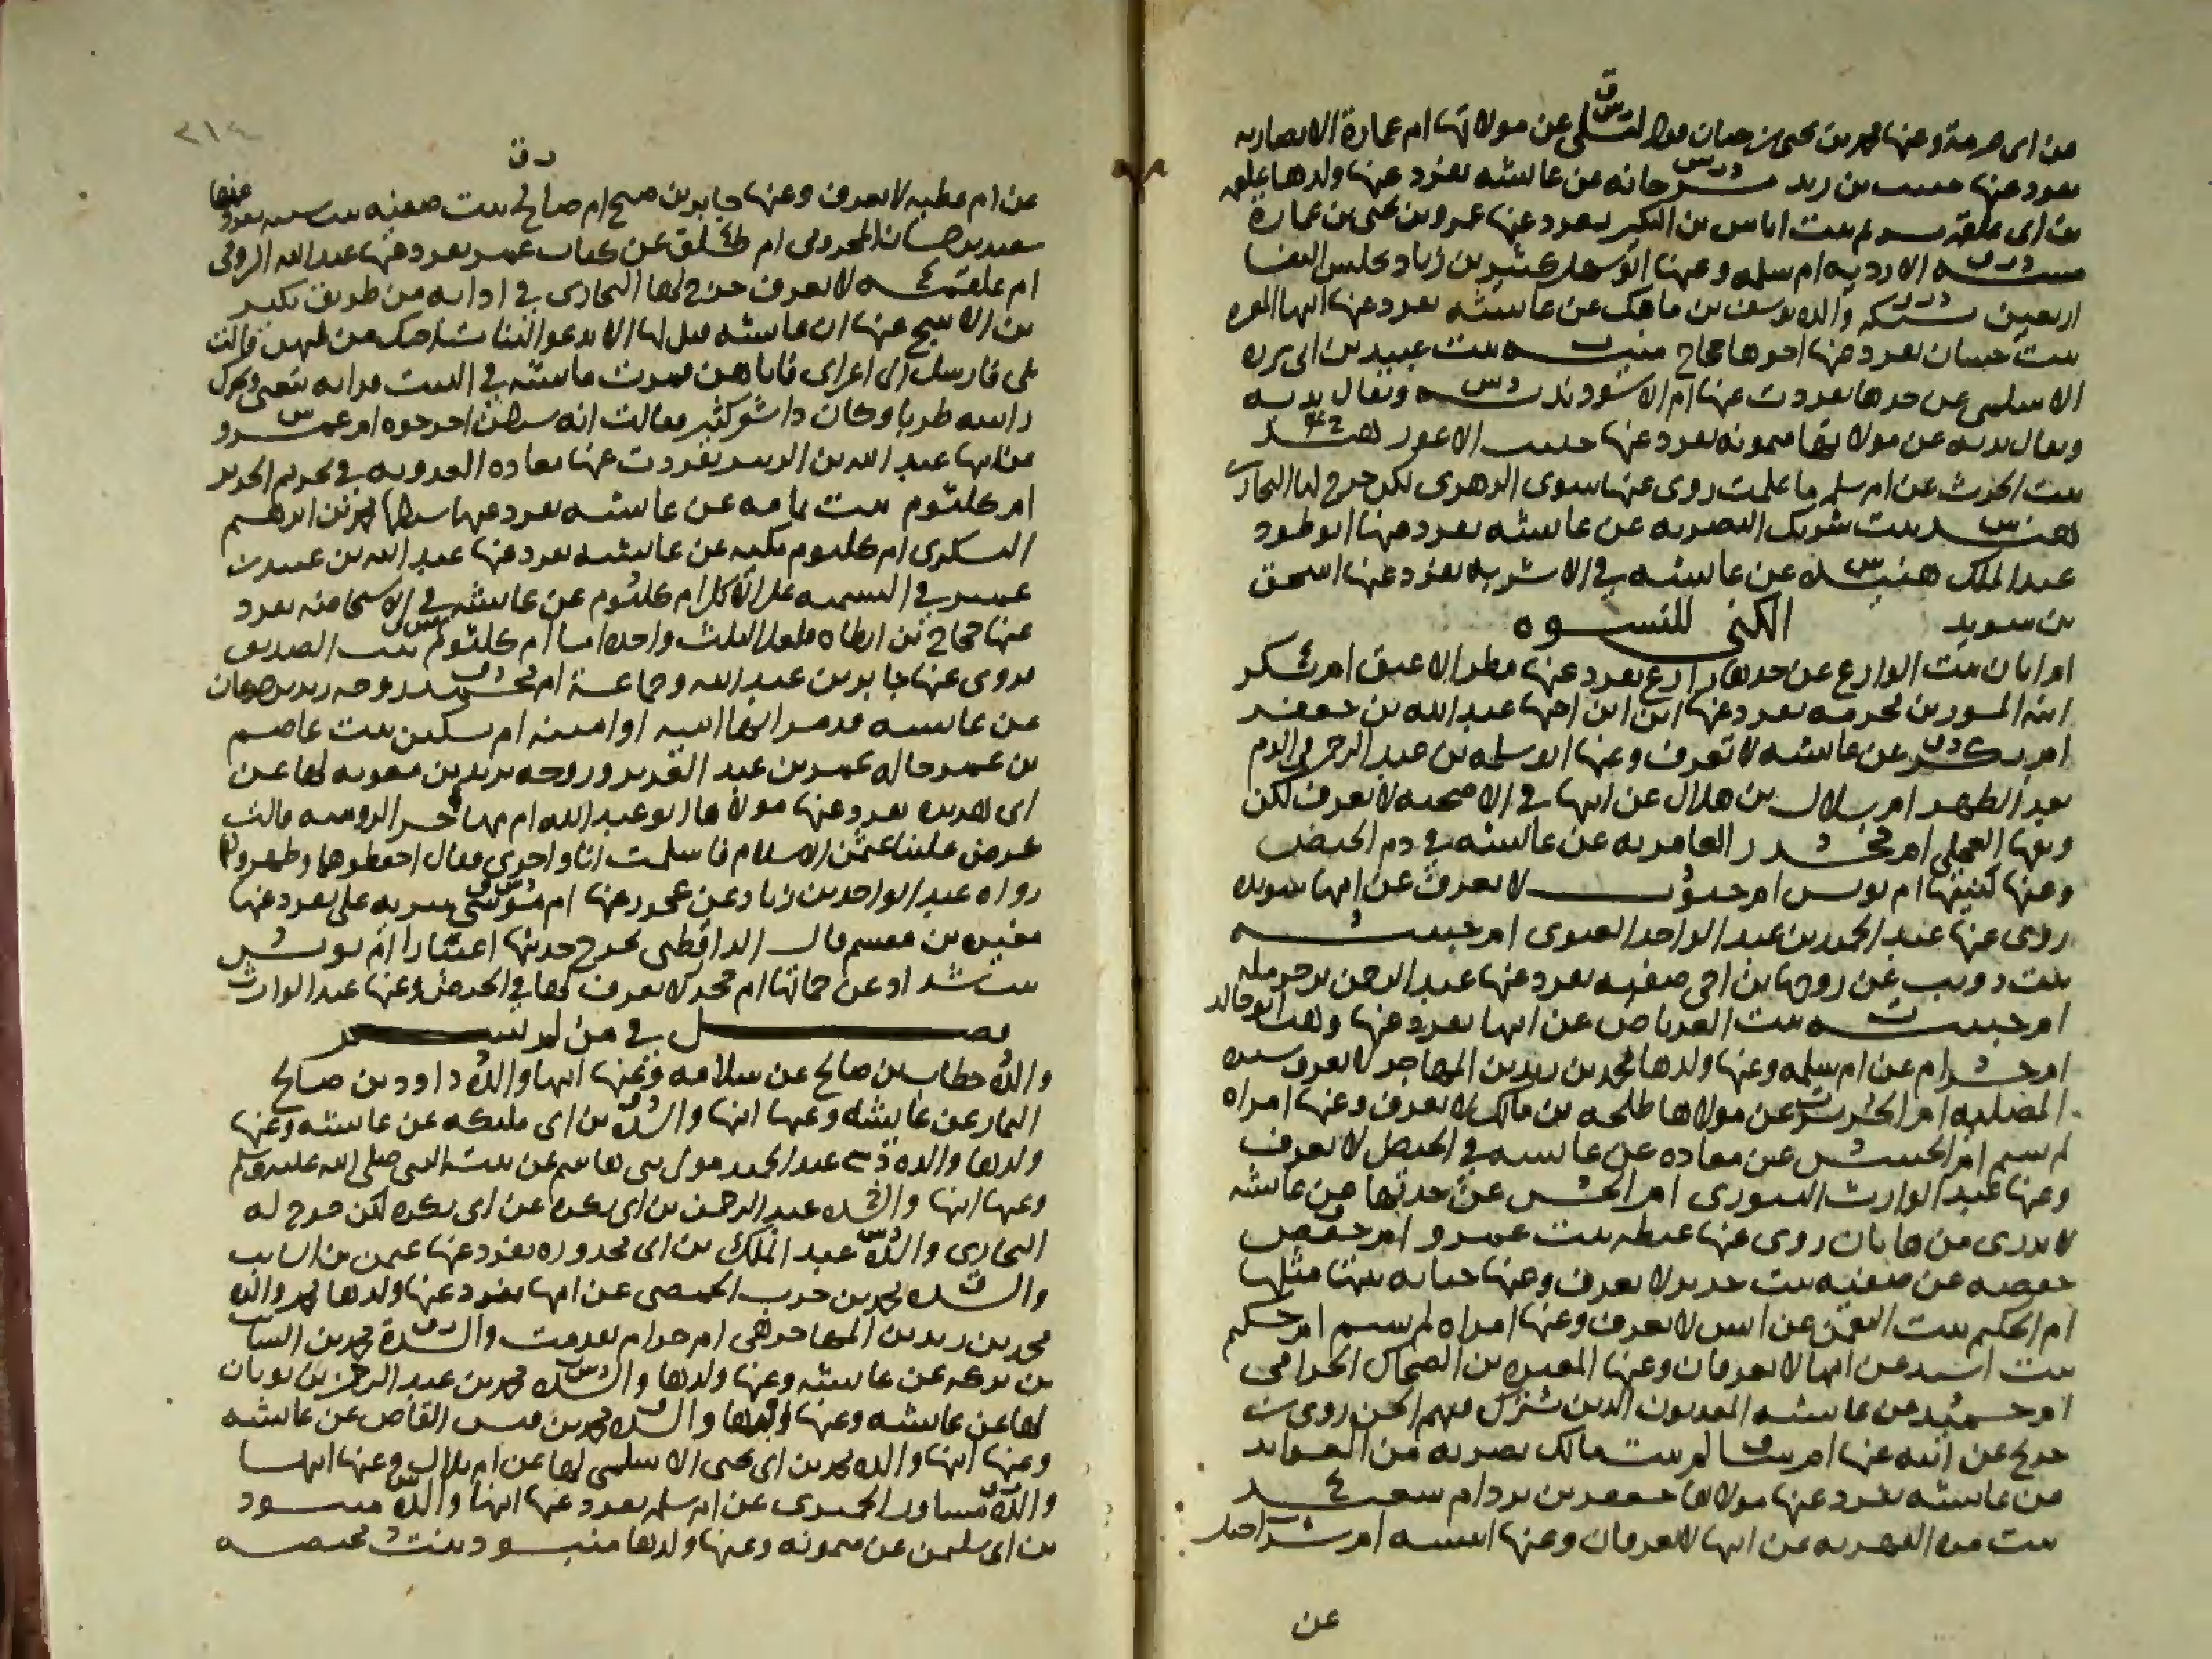 من ابى صرمة وعنها محمد بن يحيى بن حبان مولاة لعلى عن مولاتها ام عمارة الانصاريه
تفرد عنها حبيب بن زيد مرجانه عن عائشه تفرد عنها ولدها علقمه
بن ابى علقمه مريم بنت اياس بن البكير تفرد عنها عمرو بن يحيى بن عمارة
مسه الازديه ام سلمه وعنها ابو سهل كثير بن زياد تجلس النفسا
اربعين مسيكه والده يوسف بن ماهك عن عائشه تفرد عنها ابنها المغيره
بنت حسان تفرد عنها اخوها حجاج منيه بنت عبيد بن ابى برزه
الاسلمى عن جدها تفردت عنها ام الاسود ندبه ويقال بديه
ويقال بدنه عن مولاتها ميمونه تفرد عنها حبيب الاعور هند
بنت الحرث عن ام سلمه ما علمت روى عنها سوى الزهرى لكن خرج لها البخارى
هند بنت شريك البصريه عن عائشه تفرد عنها ابو طود
عبد الملك هنيده عن عائشه فى الاشربه تفرد عنها اسحق
بن سويد الكنى للنسوه
ام ابان بنت الوازع عن جدها زارع تفرد عنها مطر الاعنق ام بكر
ابنة المسور بن مخرمه تفرد عنها ابن ابن اخيها عبد الله بن جعفر
ام بكر عن عائشه لا تعرف وعنها ابو سلمه بن عبد الرحمن فى الدم
بعد الطهر ام بلال بن هلال عن ابيها فى الاضحيه لا تعرف لكن
وثقها العجلى ام جحدر العامريه عن عائشه فى دم الحيض
وعنها كنتها ام يونس ام جنوب لا تعرف عن امها سويده
روى عنها عبد الحميد بن عبد الواحد الغنوى ام حبيبه
بنت ذويب عن زوجها بن اخى صفيه تفرد عنها عبد الرحمن بن حرمله
ام حبيبه بنت العرباض عن ابيها تفرد عنها وهب ابو خالد
ام حرام عن ام سلمه وعنها ولدها محمد بن زيد بن المهاجر لا تعرف
ام الحرير عن مولاها طلحه بن مالك لا تعرف وعنها امراه
لم تسم ام الحسن عن معاده عن عائسه فى الحيض لا تعرف
وعنها عبد الوارث التنورى ام الحسن عن جدتها عن عائشه
لا يدرى من هاتان روى عنها غبطه بنت عمرو ام حفص
حفصه عن صفيه بنت جرير لا تعرف وعنها حبابه بنتها مثلها
ام الحكم بنت النعمن عن انس لا تعرف وعنها امراه لم تسم ام حكيم
بنت اسيد عن امها لا تعرفان وعنها المغيره بن الضحاك الحزامى
ام حميد عن عائشه المغربون الدين تشترك فيهم الجن روى بن
جريج عن ابيه عنها ام سالم بنت مالك بصريه من العوابد
عن عائشه تفرد عنها مولاها جعفر بن برد ام سعيد
بنت مره الفهريه عن ابيها لا تعرفان وعنها انيسه ام شراحيل
عن
٢١٤
عن ام عطيه لا تعرف وعنها جابر بن صبح ام صالح بنت صفيه بنت شيبه تفرد عنها
سعيد بن حسان المخزومى ام طلق عن كتاب عمر تفرد عنها عبد الله الرومى
ام علقمه لا تعرف خرج لها البخارى فى ادابه من طريق بكير
بن الاشج عنها ان عائشه قيل لها الا ندعو لبنات اخيك من يلهيهن قالت
بلى فارسل الى اعرابى فاتاهن فمرت عائشه فى البيت فراته يتغنى ويحرك
راسه طربا وكان ذا شعر كثير فقالت اف شيطان اخرجوه ام عمرو
عن ابيها عبد الله بن الزبير تفردت عنها معاده العدويه فى تحريم الحرير
ام كلثوم بنت ثمامه عن عائشه تفرد عنها محمد بن ابرهيم
اليشكرى ام كلثوم مكيه عن عائشه تفرد عنها عبد الله بن عبيد بن
عمير فى التسميه على الاكل ام كلثوم عن عائشه فى الاستحاضه تفرد
عنها حجاج بن ارطاه فلعل الثلث واحده اما ام كلثوم بنت الصديق
فروى عنها جابر بن عبد الله وجماعة ام محمد زوجه زيد بن جدعان
عن عائسه قد مر انها اميه او امينه ام مسكين بنت عاصم
بن عمر خاله عمر بن عبد العزيز وزوجه يزيد بن معويه لها عن
ابى هريره تفرد عنها مولاها ابو عبد الله ام مهاجر الروميه قالت
عرض علينا عثمن الاسلام فاسلمت انا واخرى فقال اخفضوهما وطهروهما
رواه عبد الواحد بن زياد عن عجوز عنها ام موسى سريه على تفرد عنها
مغيره بن مقسم قال الدارقطنى يخرج حديثها اعتبارا ام يونس
بنت شداد عن حماتها ام جحدر لا تعرف لها فى الحيض وعنها عبد الوارث
فصل فى من لم تسم
والدة خطاب بن صالح عن سلامه وعنها ابنها والدة داود بن صالح
التمار عن عايشه وعنها ابنها والدة بن ابى مليكه عن عائشه وعنها
ولدها والده عبد الحميد مولى بنى هاشم عن بنت النبى صلى الله عليه وسلم
وعنها ابنها والده عبد الرحمن بن ابى بكره عن ابى بكره لكن خرج له
البخارى والدة عبد الملك بن ابى محذوره تفرد عنها عثمن بن السايب
والده محمد بن حرب الحمصى عن امها تفرد عنها ولدها محمد والدة
محمد بن زيد بن المهاجر هى ام حرام تقدمت والدة محمد بن السايب
بن بركه عن عائشه وعنها ولدها والده محمد بن عبد الرحمن بن ثوبان
لها عن عائشه وعنها ولدها والده محمد بن قيس القاص عن عائشه
وعنها ابنها والده محمد بن ابى يحيى الاسلمى لها عن ام بلال وعنها ابنها
والدة مساور الحميرى عن ام سلمه تفرد عنها ابنها والدة منبود
بن ابى سليمن عن ميمونه وعنها ولدها منبود بنت محيصه